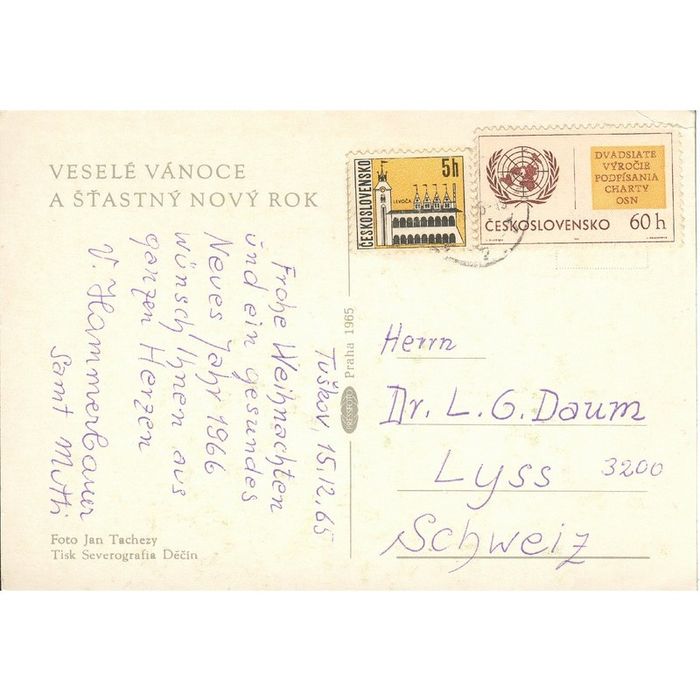 VESELÉ VÁNOCE
A ŠŤASTNÝ NOVÝ ROK
ČESKOSLOVENSKO
5h
LEVOČA
DVADSIATE
VÝROČIE
PODPÍSANIA
CHARTY
OSN
ČESKOSLOVENSKO 60h
Tuškov, 15.12.65
Frohe Weihnachten
und ein gesundes
Neues Jahr 1966
wünsch Ihnen aus
ganzen Herzen
V. Hammerbauer
samt Mutti
Praha 1965
Herrn
Dr. L. G. Daum
Lyss 3200
Schweiz
Foto Jan Tachezy
Tisk Severografia Děčín